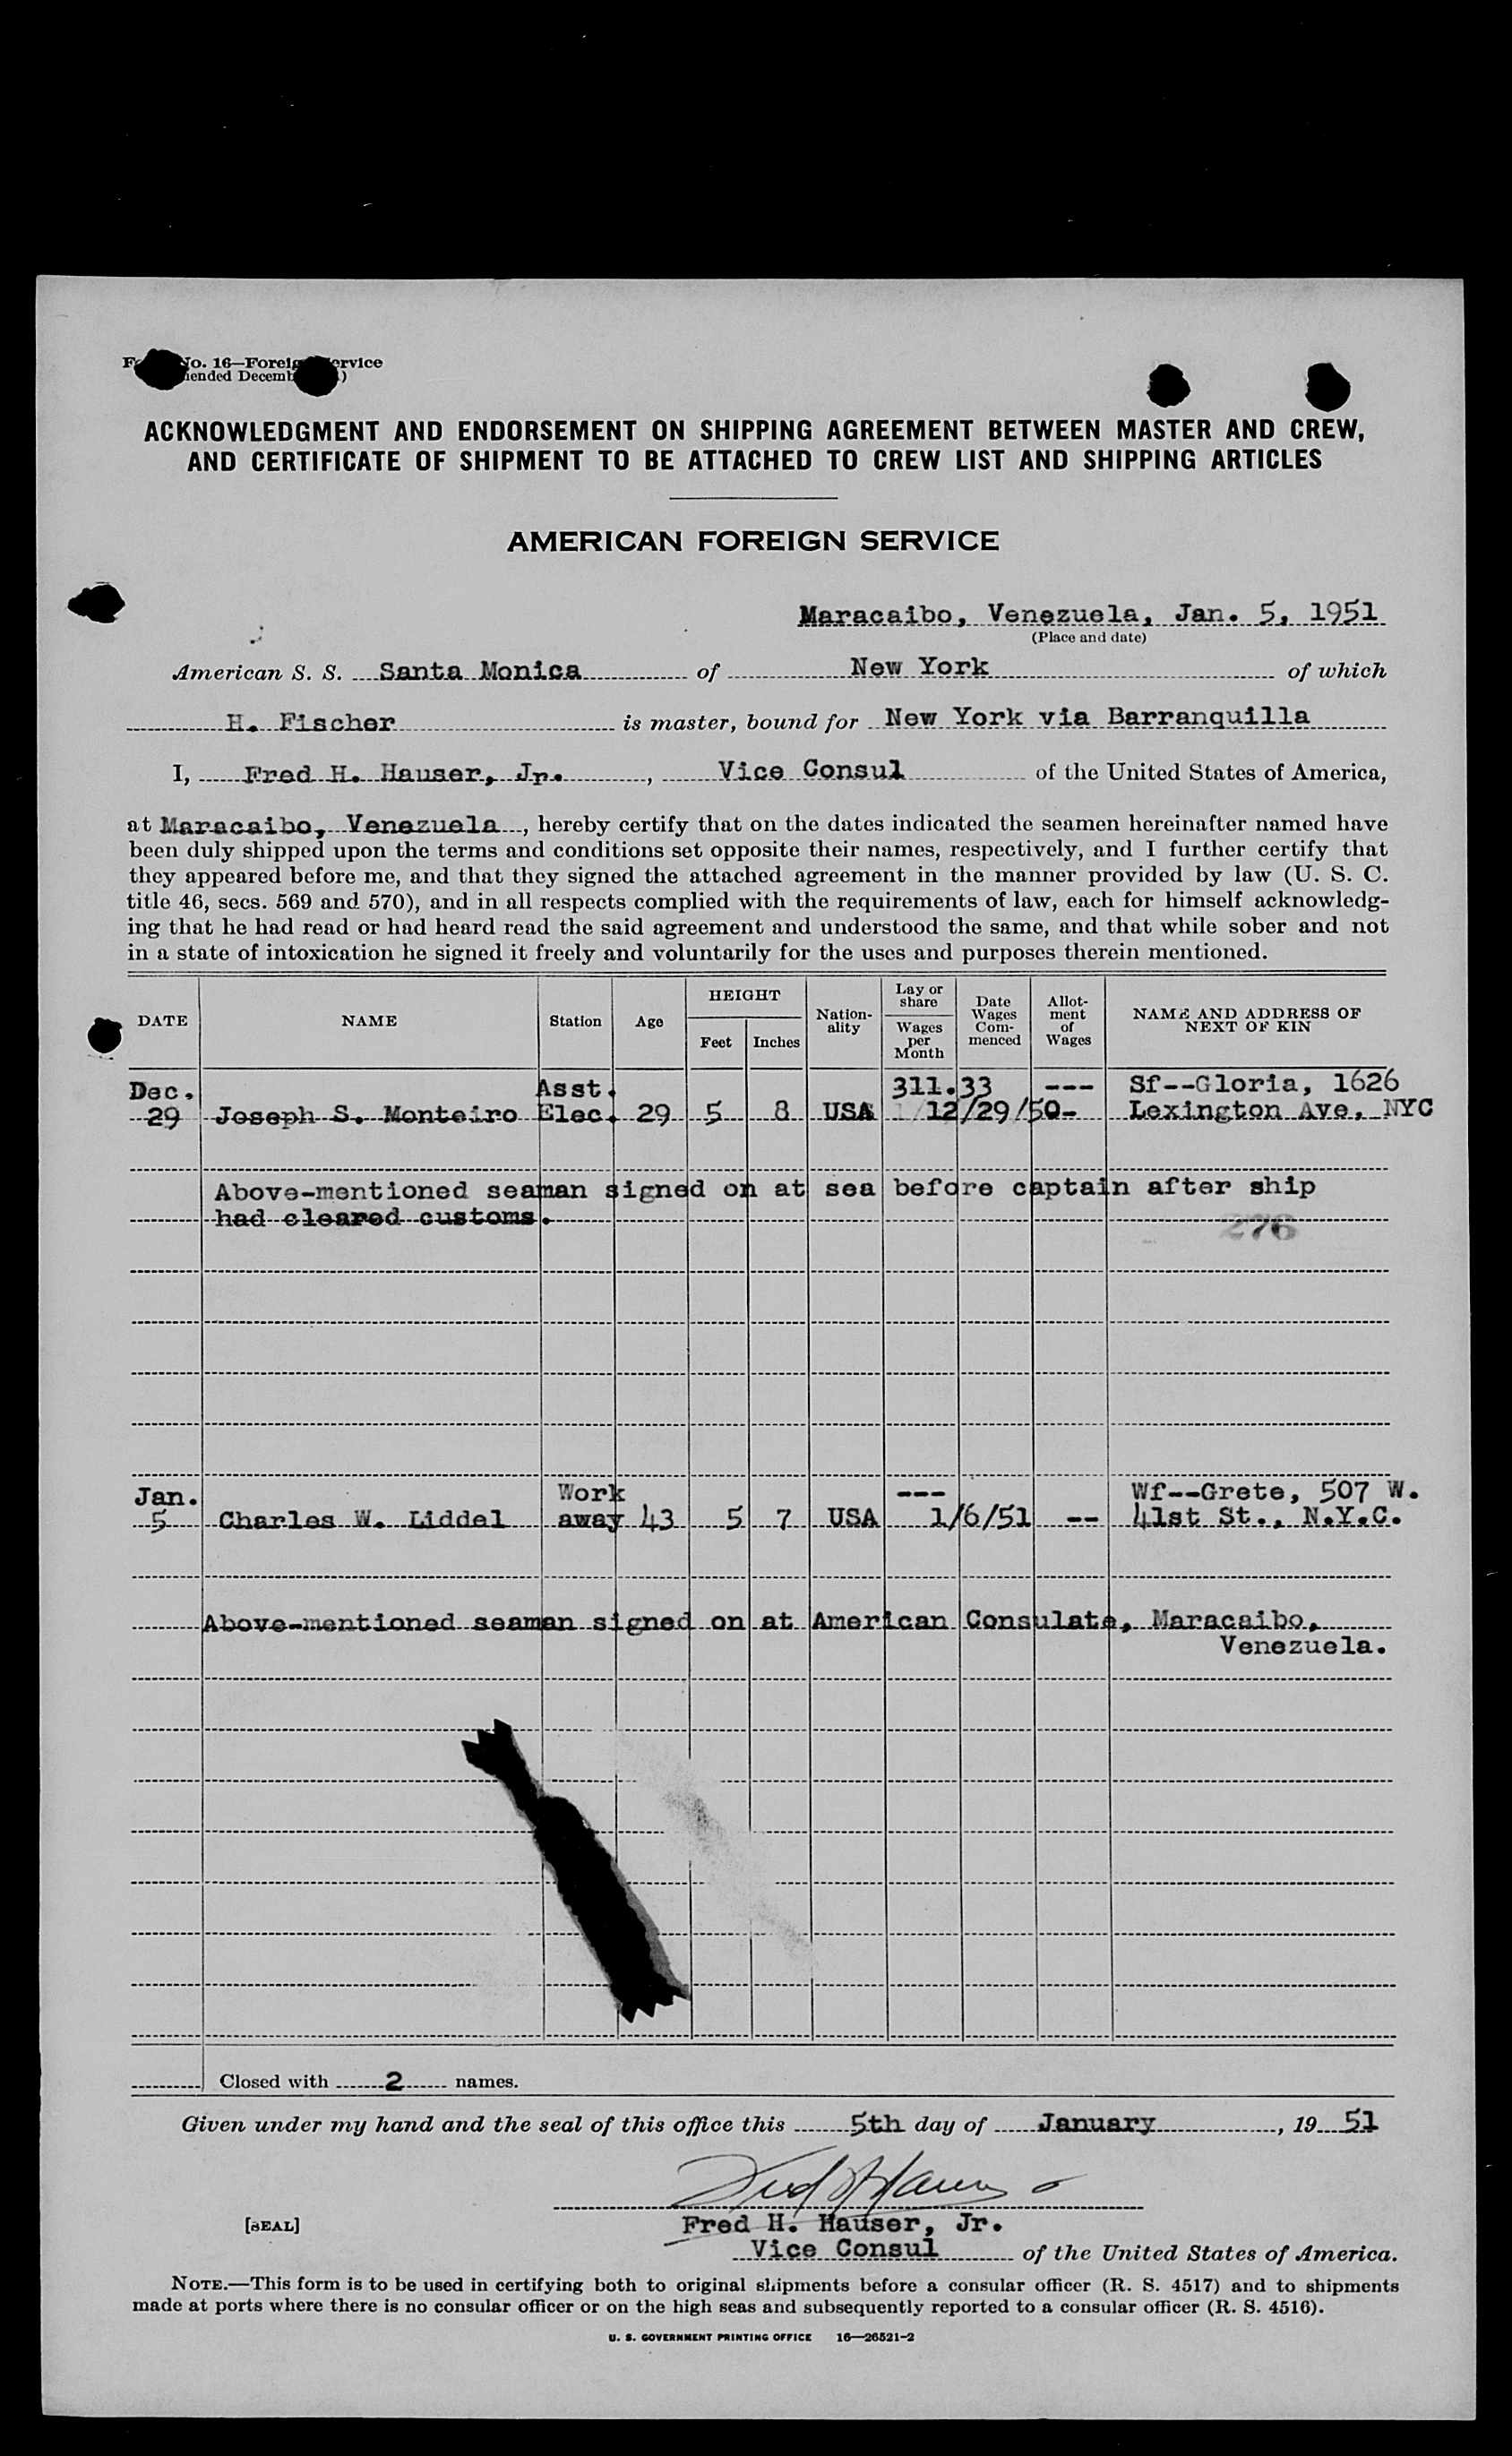 No. 16—Foreign Service
ended Decemb )
ACKNOWLEDGMENT AND ENDORSEMENT ON SHIPPING AGREEMENT BETWEEN MASTER AND CREW,
AND CERTIFICATE OF SHIPMENT TO BE ATTACHED TO CREW LIST AND SHIPPING ARTICLES
AMERICAN FOREIGN SERVICE
Maracaibo, Venezuela, Jan. 5, 1951
(Place and date)
American S. S. Santa Monica of New York of which
H. Fischer is master, bound for New York via Barranquilla
I, Fred H. Hauser, Jr., Vice Consul of the United States of America,
at Maracaibo, Venezuela, hereby certify that on the dates indicated the seamen hereinafter named have
been duly shipped upon the terms and conditions set opposite their names, respectively, and I further certify that
they appeared before me, and that they signed the attached agreement in the manner provided by law (U. S. C.
title 46, secs. 569 and 570), and in all respects complied with the requirements of law, each for himself acknowledg-
ing that he had read or had heard read the said agreement and understood the same, and that while sober and not
in a state of intoxication he signed it freely and voluntarily for the uses and purposes therein mentioned.
DATE NAME Station Age HEIGHT Feet Inches Nation-ality Lay or share Wages per Month Date Wages Com-menced Allot-ment of Wages NAME AND ADDRESS OF NEXT OF KIN
Dec. Asst. 311.33 --- Sf--Gloria, 1626
29 Joseph S. Monteiro Elec. 29 5 8 USA 12/29/50- Lexington Ave, NYC
Above-mentioned seaman signed on at sea before captain after ship
had cleared customs.
276
Jan. Work --- Wf--Grete, 507 W.
5 Charles W. Liddel away 43 5 7 USA 1/6/51 -- 41st St., N.Y.C.
Above-mentioned seaman signed on at American Consulate, Maracaibo,
Venezuela.
Closed with 2 names.
Given under my hand and the seal of this office this 5th day of January, 19 51
[SEAL]
Fred H. Hauser, Jr.
Vice Consul of the United States of America.
NOTE.—This form is to be used in certifying both to original shipments before a consular officer (R. S. 4517) and to shipments
made at ports where there is no consular officer or on the high seas and subsequently reported to a consular officer (R. S. 4516).
U. S. GOVERNMENT PRINTING OFFICE 16—26521-2